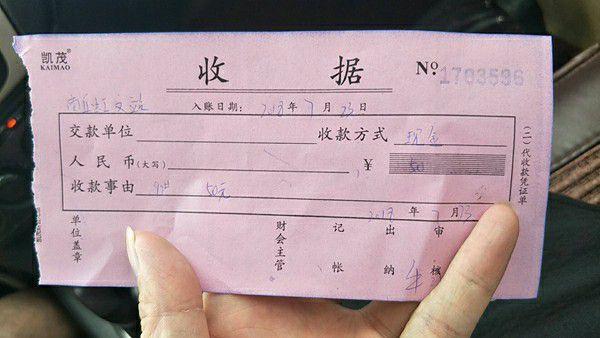 凯茂®
KAIMAO
收 据
No. 1703596
入账日期: 2013年7月23日
交款单位 收款方式 现金
人民币(大写) ¥ 50
收款事由 50元
2013年7月23
单位盖章 财会主管 记帐 出纳 审核
(二)代收款凭证单